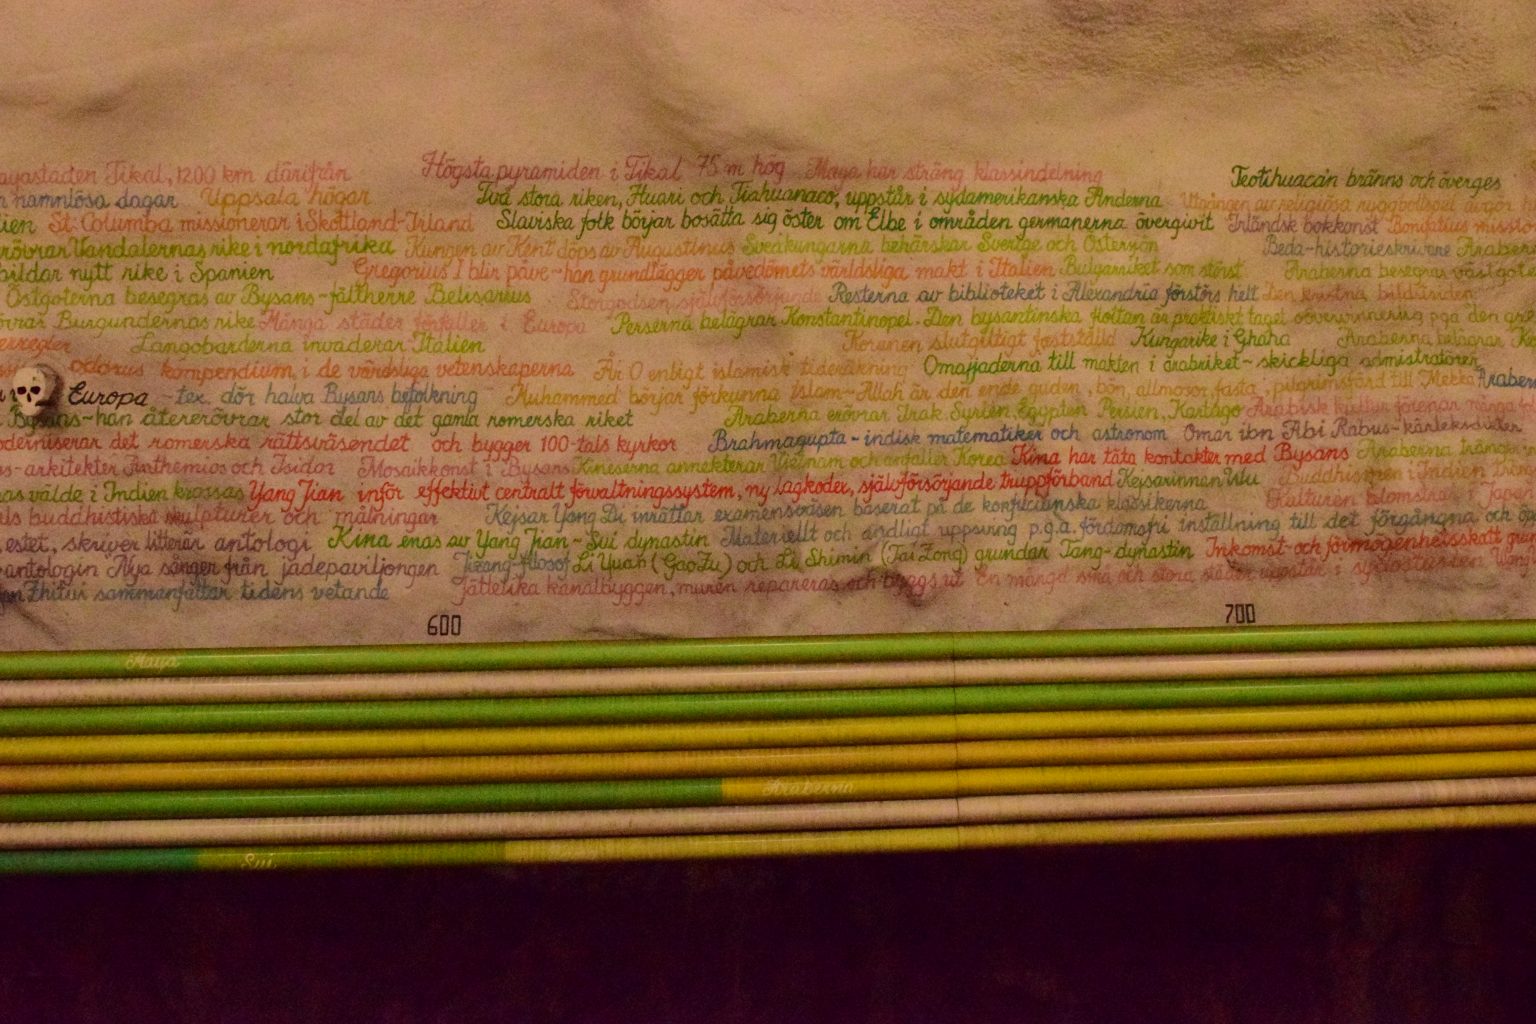 ayastaden Tikal, 1200 km därifrån Högsta pyramiden i Tikal 75 m hög Maya har sträng klassindelning Teotihuacán bränns och överges
namnlösa dagar Uppsala högar Två stora riken, Huari och Tiahuanaco, uppstår i sydamerikanska Anderna Utgången av religiösa
lien St: Columba missionerar i Skottland-Irland Slaviska folk börjar bosätta sig öster om Elbe i områden germanerna övergivit Irländsk bokkonst Bonifatius missio
rövrar Vandalernas rike i nordafrika Kungen av Kent döps av Augustinus Sveakungarna behärskar Sverige och Östersjön Beda-historieskrivare Araber
bildar nytt rike i Spanien Gregorius I blir påve-han grundlägger påvedömets världsliga makt i Italien Bulgarriket som störst Araberna besegrar västgot
Östgoterna besegras av Bysans-fältherre Belisarius Storgodsen självförsörjande Resterna av biblioteket i Alexandria förstörs helt Den kristna bildvärlden
övrar Burgundernas rike Många städer förfaller i Europa Perserna belägrar Konstantinopel. Den bysantinska flottan är praktiskt taget oövervinnerlig pga den gre
regler Langobarderna invaderar Italien Koranen slutgiltigt fastställd Kungarike i Ghana Araberna belägrar Ko
odorus kompendium i de världsliga vetenskaperna År 0 enligt islamisk tideräkning Omajjaderna till makten i arabriket-skickliga administratörer
Europa -tex. dör halva Bysans befolkning Muhammed börjar förkunna Islam-Allah är den ende guden, bön, allmosor, fasta, pilgrimsfärd till Mekka Araber
Bysans-han återerövrar stor del av det gamla romerska riket Araberna erövrar Irak, Syrien, Egypten, Persien, Kartago Arabisk kultur förenar många fo
oderniserar det romerska rättsväsendet och bygger 100-tals kyrkor Brahmagupta-indisk matematiker och astronom Omar ibn Abi Rabus-kärleksdikter
s-arkitekter Anthemios och Isidor Mosaikkonst i Bysans Kineserna annekterar Vietnam och anfaller Korea Kina har täta kontakter med Bysans Araberna tränger
as välde i Indien krossas Yang Jian inför effektivt centralt förvaltningssystem, ny lagkoder, självförsörjande truppförband Kejsarinnan Wu Buddhismen i Indien
ls buddhistiska skulpturer och målningar Kejsar Yang Di inrättar examensväsen baserat på de konfucianska klassikerna Kulturen blomstrar i Japan
, estet, skriver litterär antologi Kina enas av Yang Jian-Sui dynastin Materiellt och andligt uppsving p.g.a. fördomsfri inställning till det förgångna och
antologin Nya sånger från jadepaviljongen Tizang-filosof Li Yuan (GaoZu) och Li Shimin (Tai Zong) grundar Tang-dynastin Inkomst-och förmögenhetsskatt
an Zhitui sammanfattar tidens vetande Jättelika kanalbyggen, muren repareras och byggs ut En mängd små och stora städer uppstår i sydostasien
600 700
Maya
Araberna
Sui